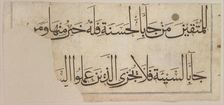 للمتقين من جا بالحسنة فله خير منها ومن
جا بالسيئة فلا يجزى الذين عملوا